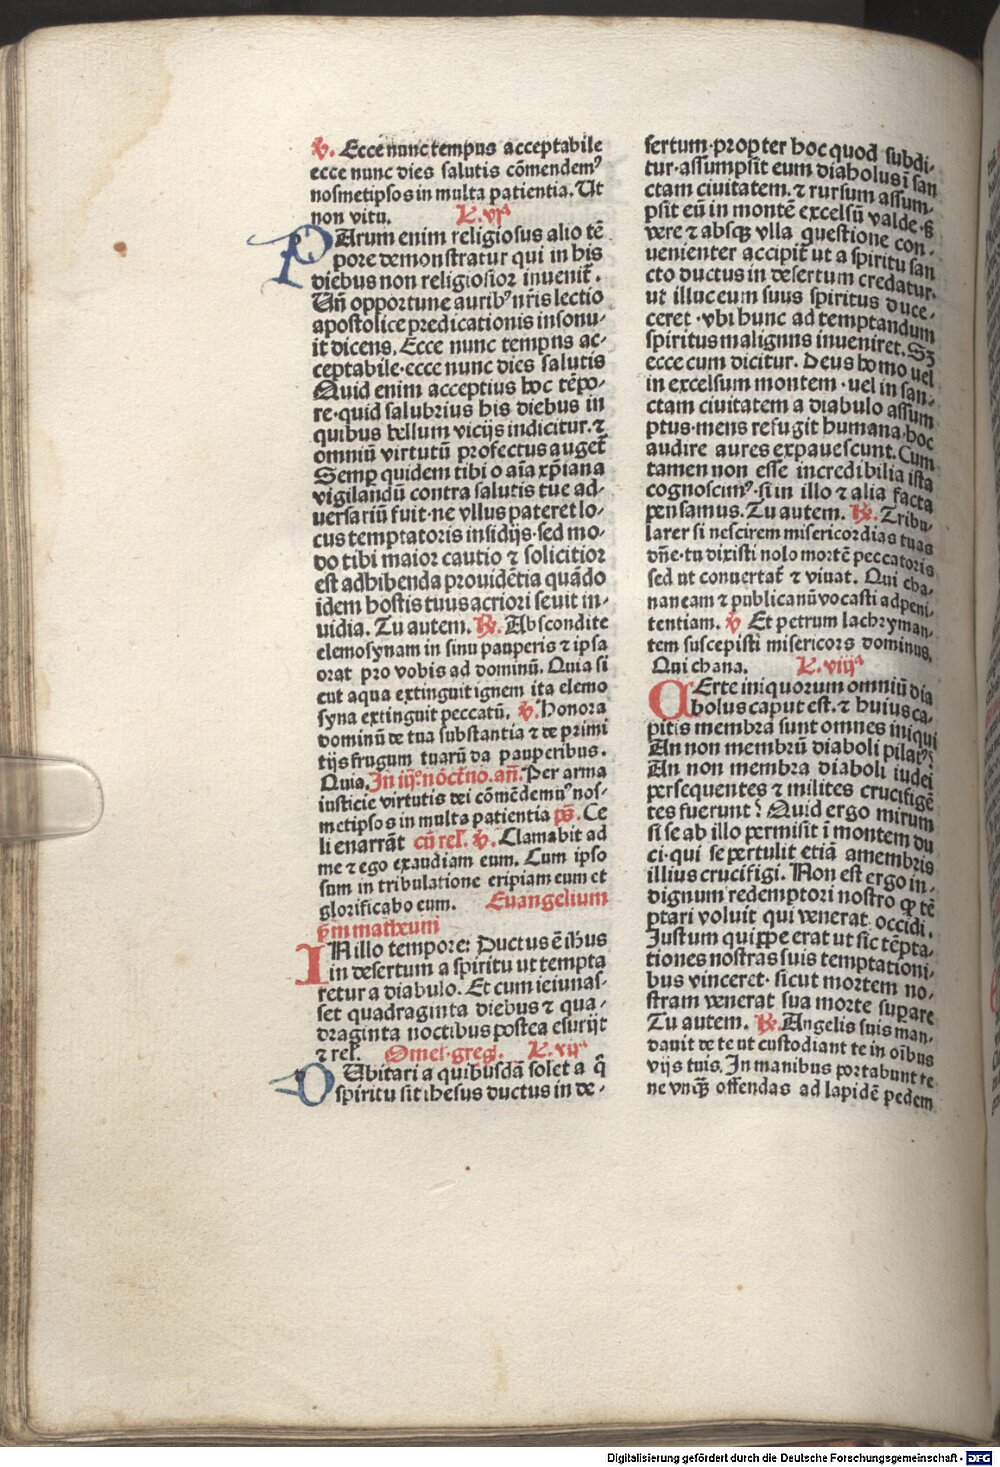 ℣. Ecce nunc tempus acceptabile
ecce nunc dies salutis cōmendemꝰ
nosmetipsos in multa patientia. Ut
non vitu. L. vjᵃ
PArum enim religiosus alio tē
pore demonstratur qui in his
diebus non religiosior invenit̄.
Un̄ opportune auribꝰ nr̄is lectio
apostolice predicationis insonu-
it dicens. Ecce nunc tempus ac-
ceptabile·ecce nunc dies salutis
Quid enim acceptius hoc tēpo-
re·quid salubrius his diebus in
quibus bellum vicijs indicitur.⁊
omniū virtutū profectus auget̄
Semꝑ quidem tibi o aīa xp̄iana
vigilandū contra salutis tue ad-
versariū fuit·ne vllus pateret lo-
cus temptatoris insidijs·sed mo-
do tibi maior cautio ⁊ solicitior
est adhibenda prouidētia quādo
idem hostis tuus acriori seuit in-
uidia. Tu autem. ℟. Abscondite
elemosynam in sinu pauperis ⁊ ipsa
orat pro vobis ad dominū. Quia si
cut aqua extinguit ignem ita elemo
syna extinguit peccatū. ℣. Honora
dominū de tua substantia ⁊ de primi
tijs frugum tuarū da pauperibus.
Quia. In iij. nōct̄no. an̄. Per arma
iusticie virtutis dei cōmēdemꝰ nos-
metipsos in multa patientia ps̄. Ce
li enarrāt cū rel̄. ℣. Clamabit ad
me ⁊ ego exaudiam eum. Cum ipso
sum in tribulatione eripiam eum et
glorificabo eum. Euangelium
ẜm matheum
IN illo tempore: Ductus ē ih̄us
in desertum a spiritu ut tempta
retur a diabulo. Et cum ieiunas-
set quadraginta diebus ⁊ qua-
draginta noctibus postea esurijt
⁊ rel̄. Omel·greg. L. vijᵃ
DUbitari a quibusdā solet a q̄
spiritu sit ihesus ductus in de-
sertum·propter hoc quod subdi-
tur·assumpsit eum diabolus ī san
ctam ciuitatem.⁊ rursum assum-
psit eū in montē excelsū valde·sꝫ
vere ⁊ absqꝫ vlla questione con-
uenienter accipit̄ ut a spiritu san
cto ductus in desertum credatur.
ut illuc eum suus spiritus duce-
ceret·vbi hunc ad temptandum
spiritus malignus inueniret. Sꝫ
ecce cum dicitur. Deus homo uel
in excelsum montem·uel in san-
ctam ciuitatem a diabulo assum
ptus·mens refugit humana·hoc
audire aures expauescunt. Cum
tamen non esse incredibilia ista
cognoscimꝰ·si in illo ⁊ alia facta
pensamus. Tu autem. ℟. Tribu-
larer si nescirem misericordias tuas
dn̄e·tu dixisti nolo mortē peccatoris
sed ut conuertat̄ ⁊ viuat. Qui cha-
naneam ⁊ publicanū vocasti ad peni-
tentiam. ℣ Et petrum lachryman-
tem suscepisti misericors dominus.
Qui chana. L. viijᵃ
CErte iniquorum omniū dia
bolus caput est.⁊ huius ca-
pitis membra sunt omnes iniqui
An non membrū diaboli pilatꝰ?
An non membra diaboli iudei
persequentes ⁊ milites crucifigē
tes fuerunt? Quid ergo mirum
si se ab illo permisit ī montem du
ci·qui se pertulit etiā a membris
illius crucifigi. Non est ergo in-
dignum redemptori nostro ꝙ tē
ptari voluit qui venerat occidi.
Justum quippe erat ut sic tēpta-
tiones nostras suis temptationi-
bus vinceret·sicut mortem no-
stram venerat sua morte suꝑare
Tu autem. ℟. Angelis suis man-
dauit de te ut custodiant te in oībus
vijs tuis. In manibus portabunt te
ne vnqꝫ offendas ad lapidē pedem
Digitalisierung gefördert durch die Deutsche Forschungsgemeinschaft - DFG